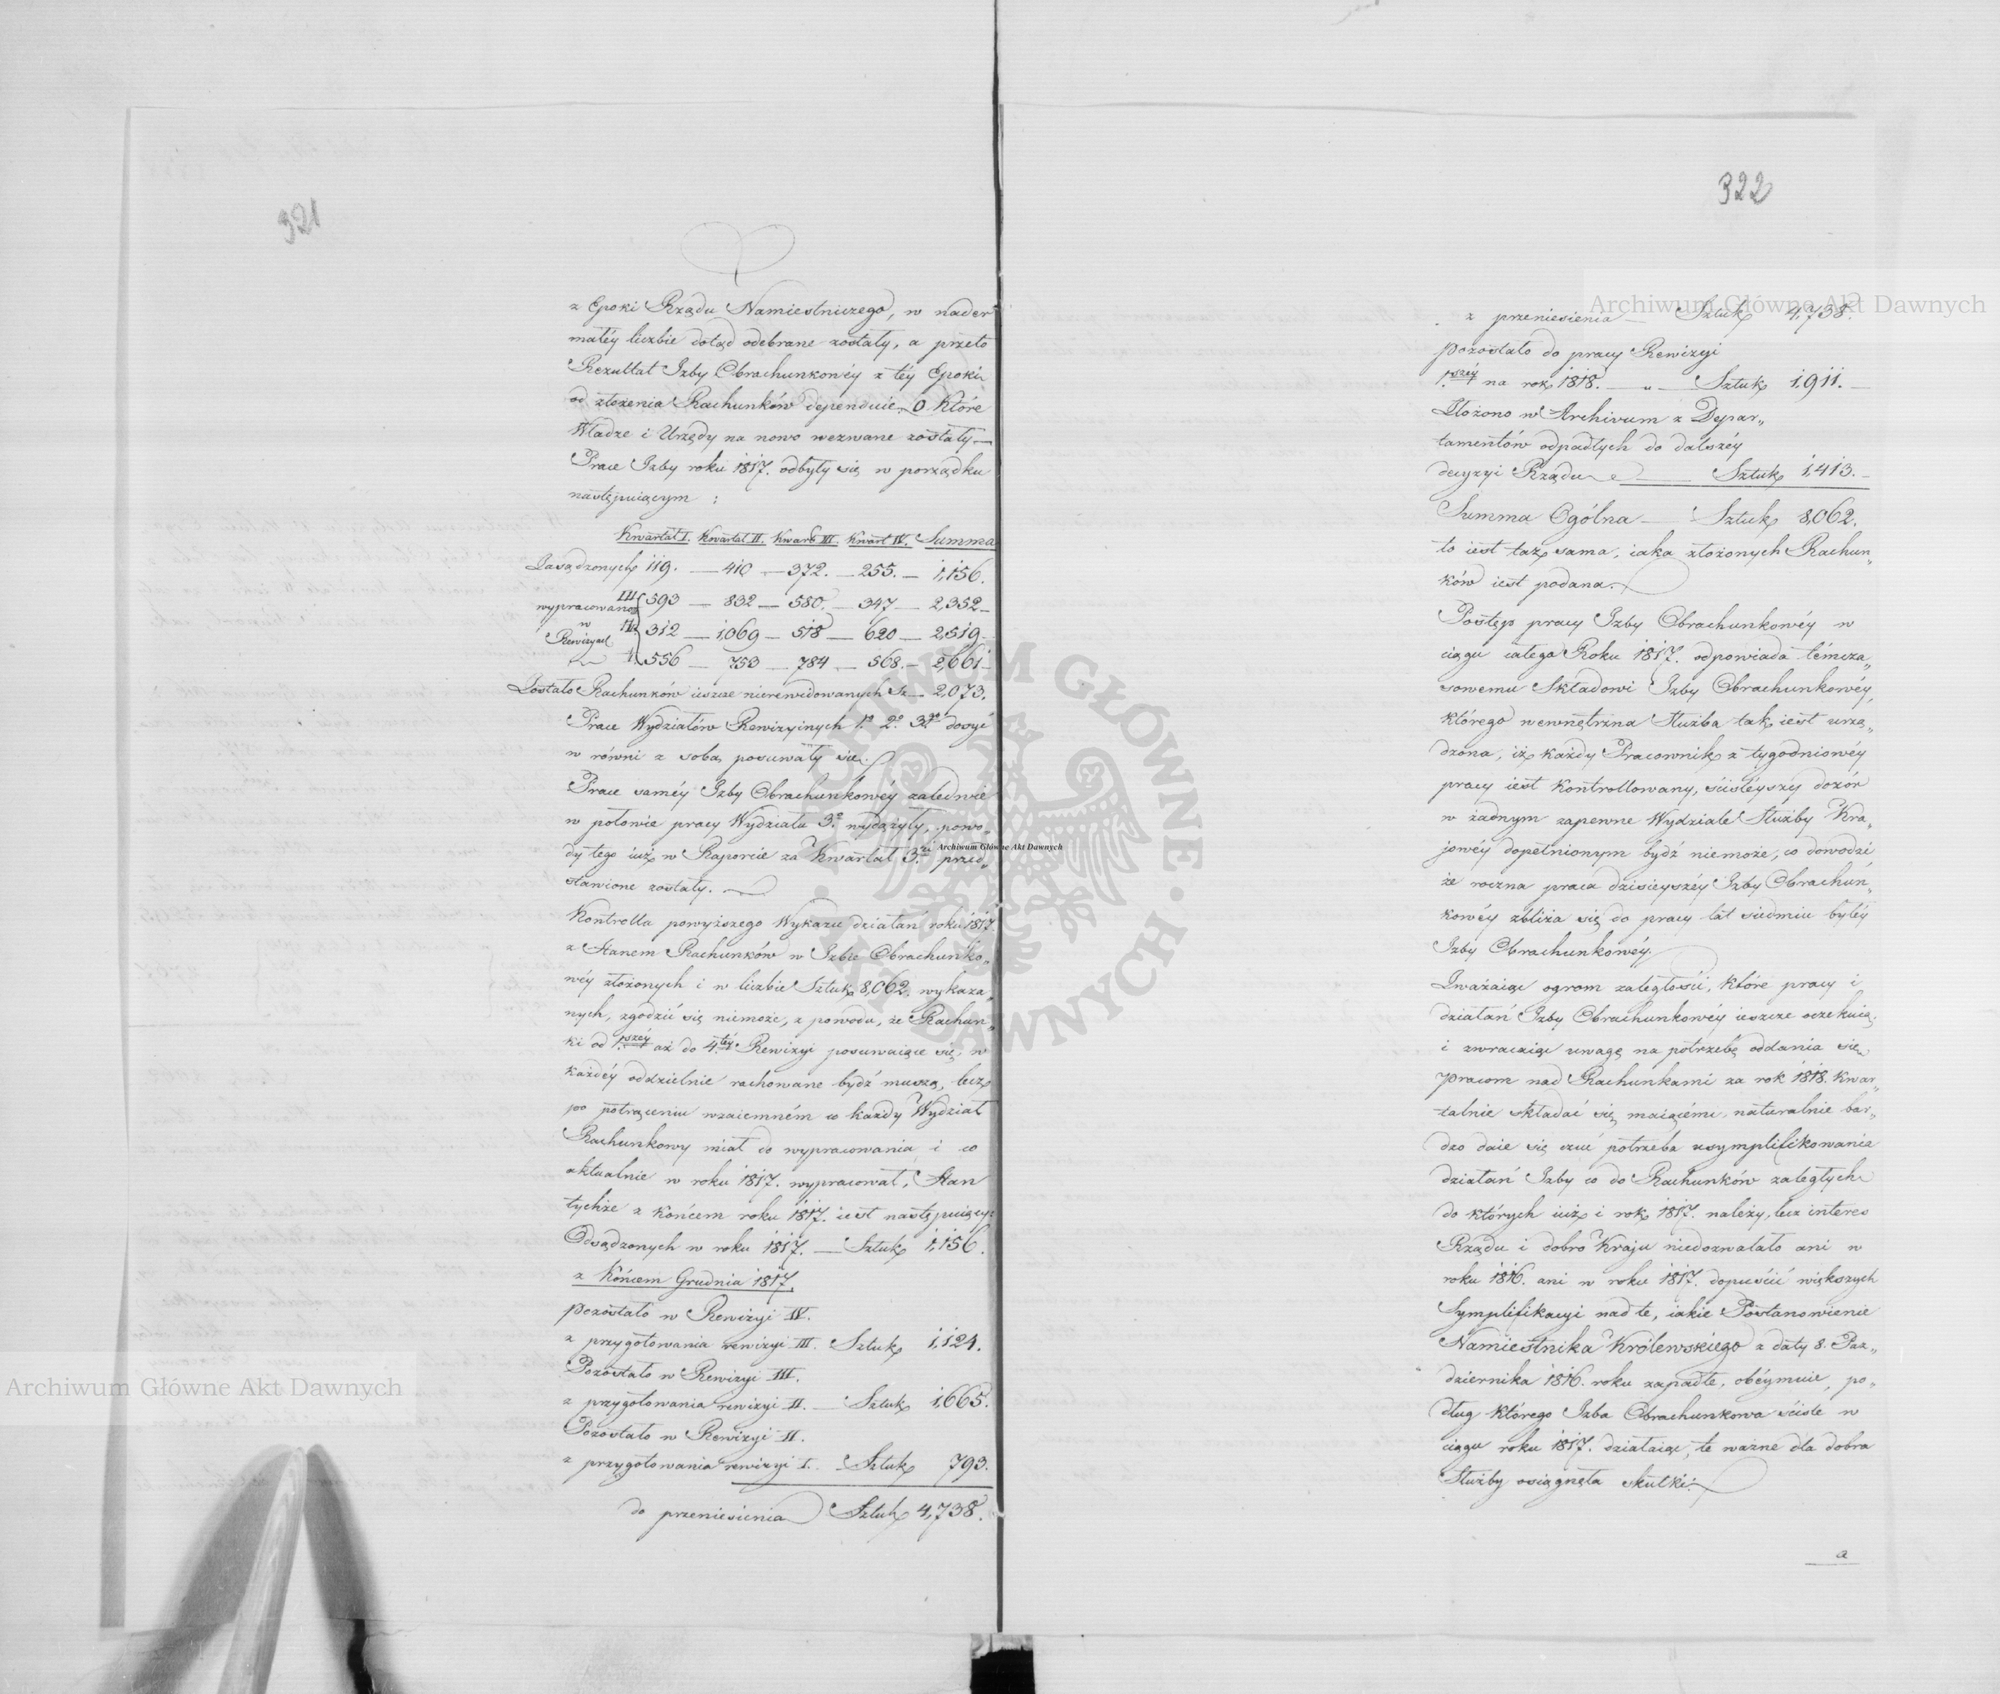 321
z Epoki Rządu Namiestniczego, w nader
małéy liczbie dotąd odebrane zostały, a przeto
Rezultat Izby Obrachunkowéy z téy Epoki
od złożenia Rachunków dependuie, o które
Władze i Urzędy na nowo wezwane zostały —
Prace Izby roku 1817. odbyły się w porządku
następuiącym :
Kwartał I. Kwartał II. Kwart III. Kwart IV. Summa
Zasądzonych 119. — 410 — 372. — 255. — 1,156.
wypracowano III 593 — 832 — 580. — 347 — 2,352 —
w Rewizyach II 312 — 1,069 — 518 — 620 — 2,519 —
I. 556 — 753 — 784 — 568. — 2,661 —
Zostało Rachunków ieszcze nierewidowanych Sz — 2,073.
Prace Wydziałów Rewizyinych 1º 2º 3º dosyć
w równi z sobą posuwały się.
Prace saméy Izby Obrachunkowéy zaledwie
w połowie pracy Wydziału 3º wydążyły, powo„
dy tego iuż w Raporcie za Kwartał 3ci przed„
stawione zostały.
Kontrolla powyższego Wykazu działań roku 1817.
z Stanem Rachunków w Izbie Obrachunko„
wéy złożonych i w liczbie Sztuk 8,062. wykaza„
nych, zgodzić się niemoże, z powodu, że Rachun„
ki od 1széy aż do 4téy Rewizyi posuwaiące się, w
każdéy oddzielnie rachowane bydź muszą, lecz
po potrąceniu wzaiemném co każdy Wydział
Rachunkowy miał do wypracowania, i co
aktualnie w roku 1817. wypracował, Stan
tychże z końcem roku 1817. iest następuiący:
Odsądzonych w roku 1817. — Sztuk 1,156.
z Końcem Grudnia 1817.
pozostało w Rewizyi IV.
z przygotowania rewizyi III. Sztuk 1,124.
Pozostało w Rewizyi III.
z przygotowania rewizyi II. — Sztuk 1,665.
Pozostało w Rewizyi II.
z przygotowania rewizyi I. — Sztuk 793.
do przeniesienia Sztuk 4,738.
322
z przeniesienia — Sztuk 4,738.
pozostało do pracy Rewizyi
1széy na rok 1818. — „ — Sztuk 1,911. —
Złożono w Archivum z Depar„
tamentów odpadłych do dalszéy
decyzyi Rządu — Sztuk 1,413. —
Summa Ogólna — Sztuk 8,062.
to iest taż sama, iaka złożonych Rachun„
ków iest podana.
Postęp pracy Izby Obrachunkowéy w
ciągu całego Roku 1817. odpowiada témcza„
sowemu Składowi Izby Obrachunkowéy,
którego wewnętrzna Służba tak iest urzą„
dzona, iż każdy Pracownik z tygodniowéy
pracy iest kontrollowany, ściśleyszy dozór
w żadnym zapewne Wydziale Służby Kra„
jowey dopełnionym bydź niemoże, co dowodzi
że roczna praca dzisieyszéy Izby Obrachun„
kowéy zbliża się do pracy lat siedmiu byłéy
Izby Obrachunkowéy.
Zważaiąc ogrom zaległości, które pracy i
działań Izby Obrachunkowéy ieszcze oczekuią.
i zwracaiąc uwagę na potrzebę oddania się
pracom nad Rachunkami za rok 1818. kwar„
talnie składać się maiącémi, naturalnie bar„
dzo daie się czuć potrzeba usymplifikowania
działań Izby co do Rachunków zaległych
do których iuż i rok 1817. należy, lecz interes
Rządu i dobro Kraju niedozwalało ani w
roku 1816. ani w roku 1817. dopuścić większych
Symplifikacyi nad te, iakie Postanowienie
Namiestnika Królewskiego z daty 8. Paz„
dziernika 1816. roku zapadłe, obéymuie, po„
dług którego Izba Obrachunkowa ściśle w
ciągu roku 1817. działaiąc, te ważne dla dobra
Służby osiągnęła skutki:
a
Archiwum Główne Akt Dawnych
Archiwum Główne Akt Dawnych
Archiwum Główne Akt Dawnych
ARCHIWUM GŁÓWNE · AKT DAWNYCH ·